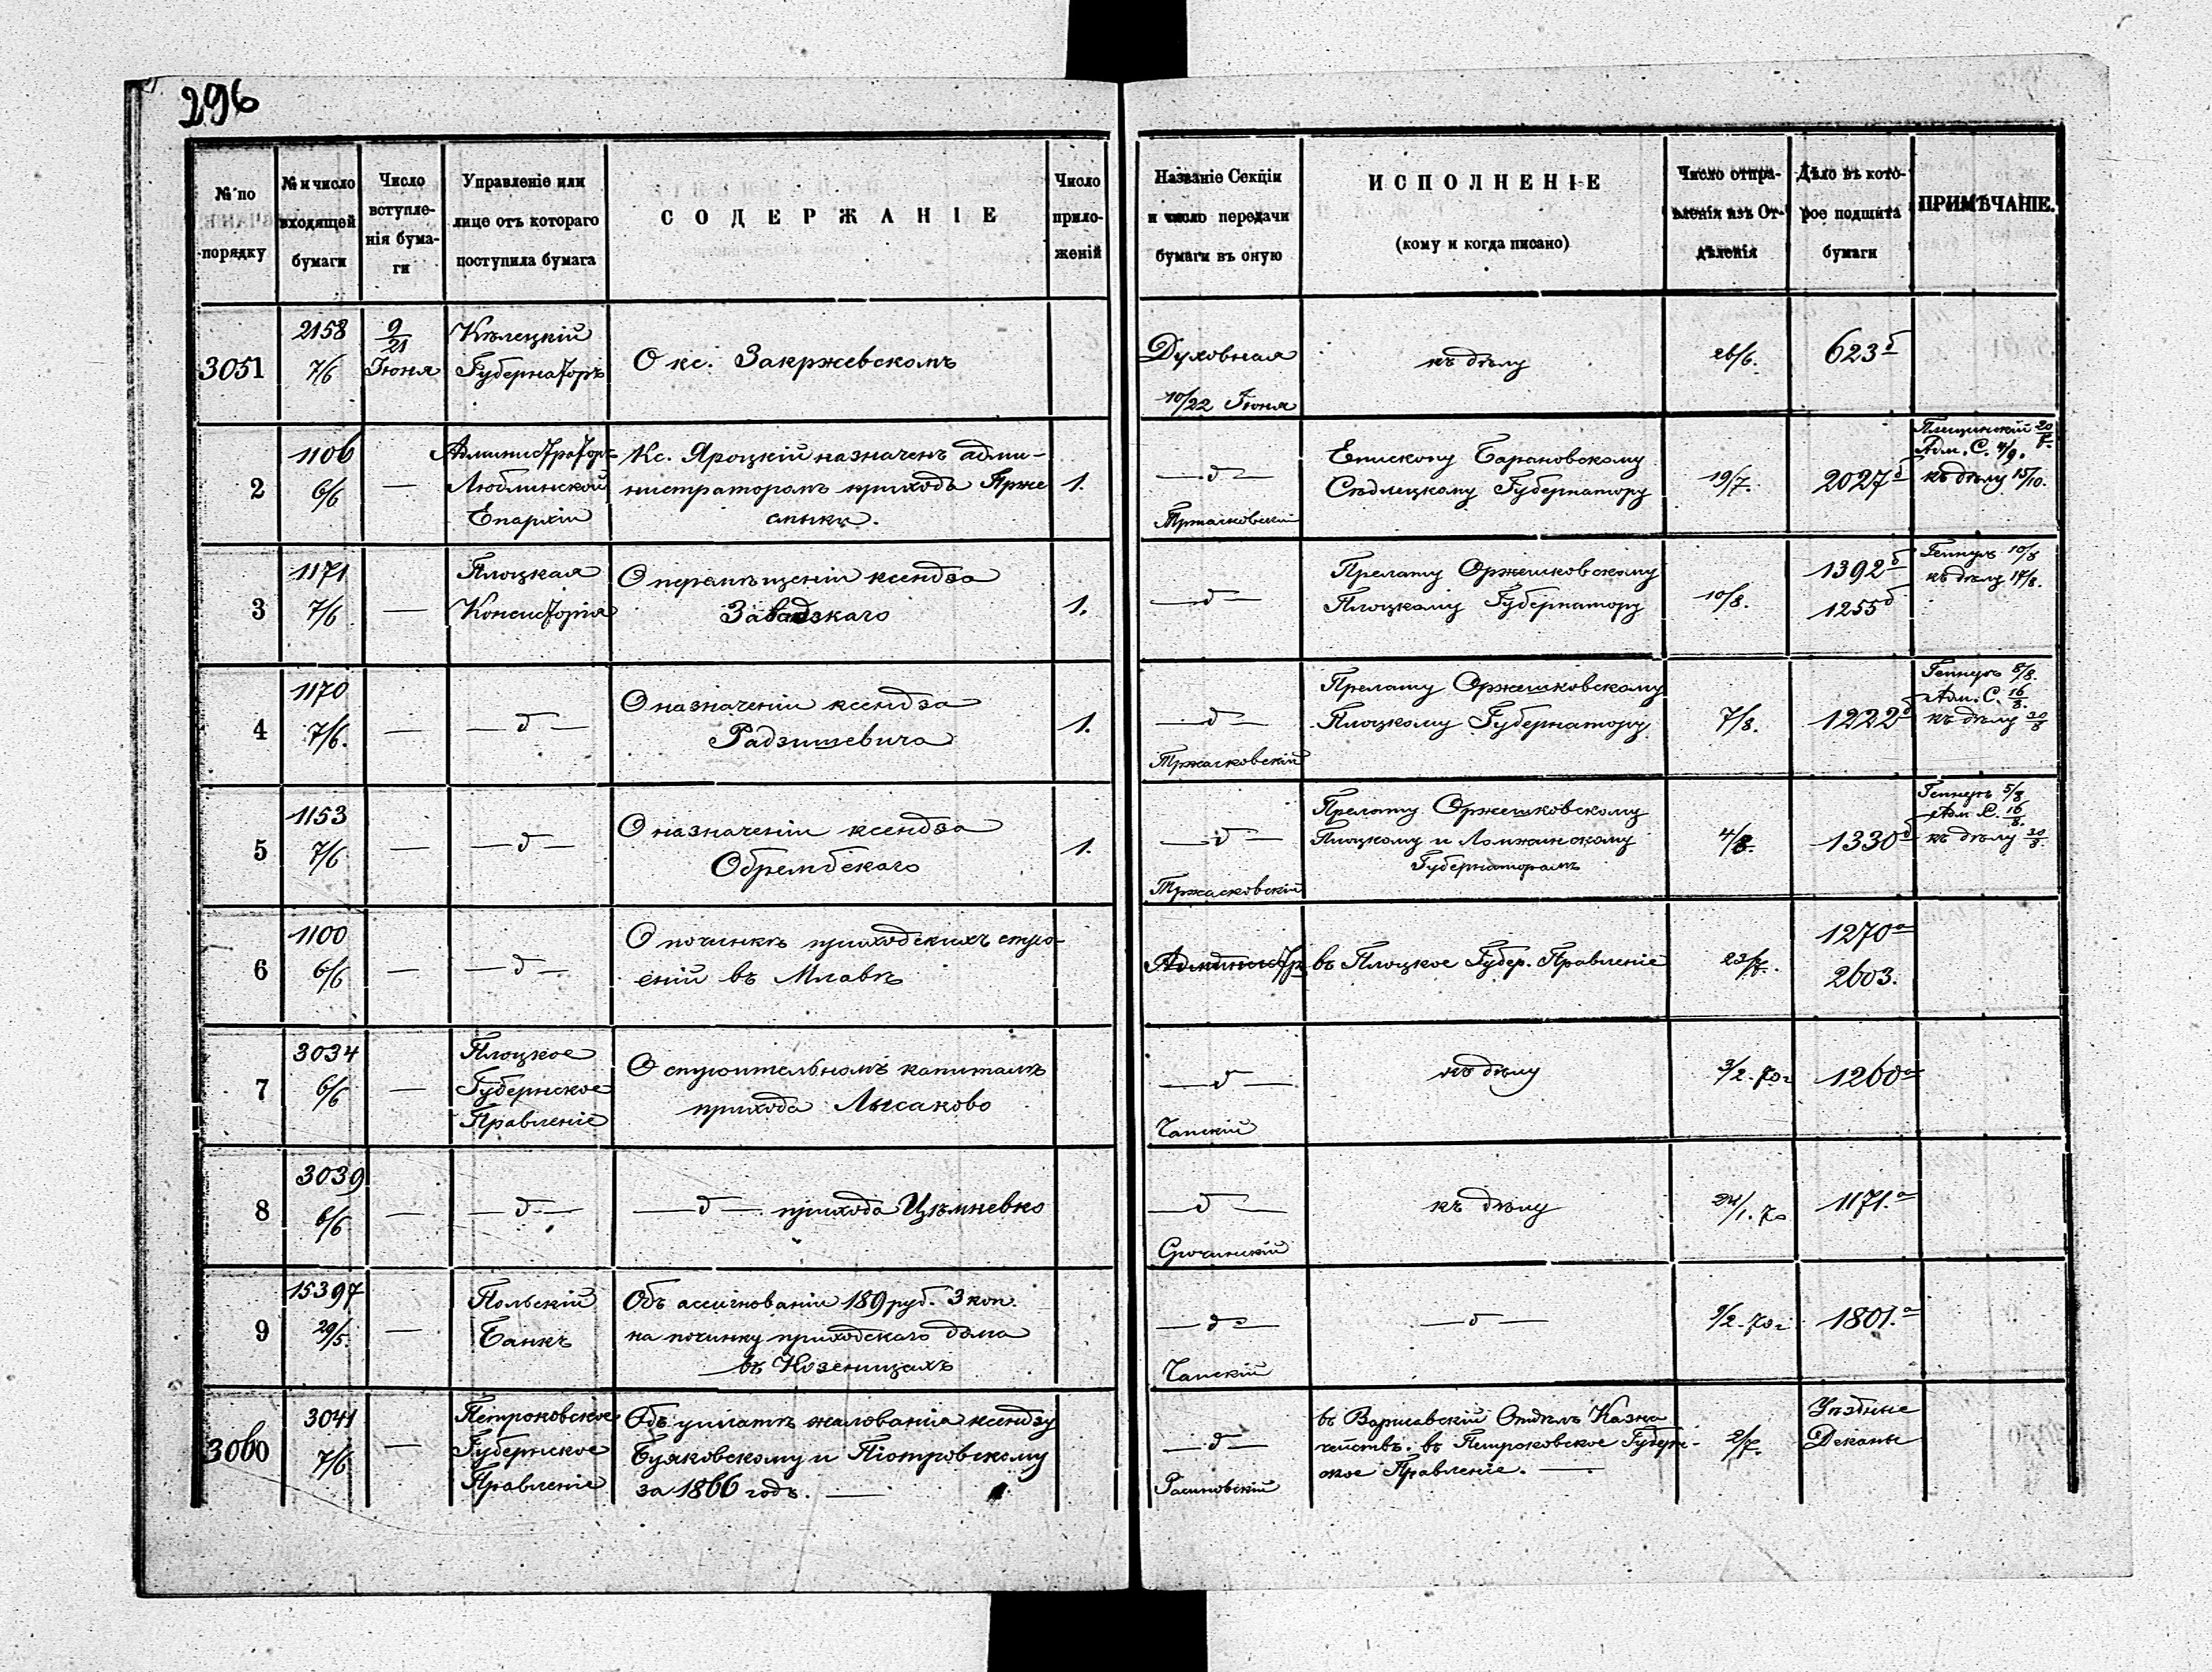 296
№ по порядку
№ и число входящей бумаги
Число вступле-
нія бума-
ги
Управленіе или
лице отъ котораго
поступила бумага
СОДЕРЖАНІЕ
Число
прило-
женій
Названіе Секціи
и число передачи
бумаги въ оную
ИСПОЛНЕНІЕ
(кому и когда писано)
Число отпра-
вленія изъ От-
дѣленія
Дѣло въ кото-
рое подшита
бумаги
ПРИМѢЧАНІЕ.
3051
2158
7/6
9/21
Іюня
Кѣлецкій
Губернаторъ
О кс. Закржевскомъ
Духовная
10/22 Іюня
къ дѣлу
26/6.
623 б
2
1106
6/6
—
Администраторъ
Люблинской
Епархіи
Кс. Яроцкій назначенъ адми-
нистраторомъ прихода Прже
смыки.
1.
— д —
Тржасковскій
Епископу Барановскому
Сѣдлецкому Губернатору
19/7.
2027 б
Адм. С. 4/9.
къ дѣлу 15/10.
3
1171
7/6
—
Плоцкая
Консисторія
О перемѣщеніи ксендза
Завадзкаго
1.
— д —
Прелату Оржешковскому
Плоцкому Губернатору
10/8.
1392 б
1255 б
къ дѣлу 17/8.
4
1170
7/6.
—
— д —
О назначеніи ксендза
Радзишевича
1.
— д —
Тржасковскій
Прелату Оржешковскому
Плоцкому Губернатору
7/8.
1222 б
Адм. С. 16/8.
къ дѣлу 20/8
5
1153
7/6
—
— д —
О назначеніи ксендза
Обрембскаго
1.
— д —
Тржасковскій
Прелату Оржешковскому
Плоцкому и Ломжинскому
Губернаторамъ
4/8.
1330 б
Адм. С. 16/8.
къ дѣлу 20/8
6
1100
6/6
—
— д —
О починкѣ приходскихъ стро-
еній въ Млавѣ
Администр
въ Плоцкое Губер. Правленіе
23/7.
1270 а
2603.
7
3034
6/6
—
Плоцкое
Губернское
Правленіе
О строительномъ капиталѣ
прихода Лысаково
— д —
Чапскій
къ дѣлу
3/2 - 70 г
1260 а
8
3039
6/6
—
— д —
— д — прихода Цѣмневко
— д —
Срочинскій
къ дѣлу
24/1. 70
1171. а
9
15397
29/5.
—
Польскій
Банкъ
Объ ассигнованіи 189 руб. 3 коп.
на починку приходскаго дома
въ Козеницахъ
— д —
Чапскій
— д —
9/2 - 70 г.
1801. а
3060
3041
7/6
—
Петроковское
Губернское
Правленіе
Объ уплатѣ жалованія ксендзу
Буяковскому и Піотровскому
за 1866 годъ. —
— д —
въ Варшавскій Отдѣлъ Казна
чействъ. въ Петроковское Губерн-
ское Правленіе. —
2/7.
Уѣздные
Деканы